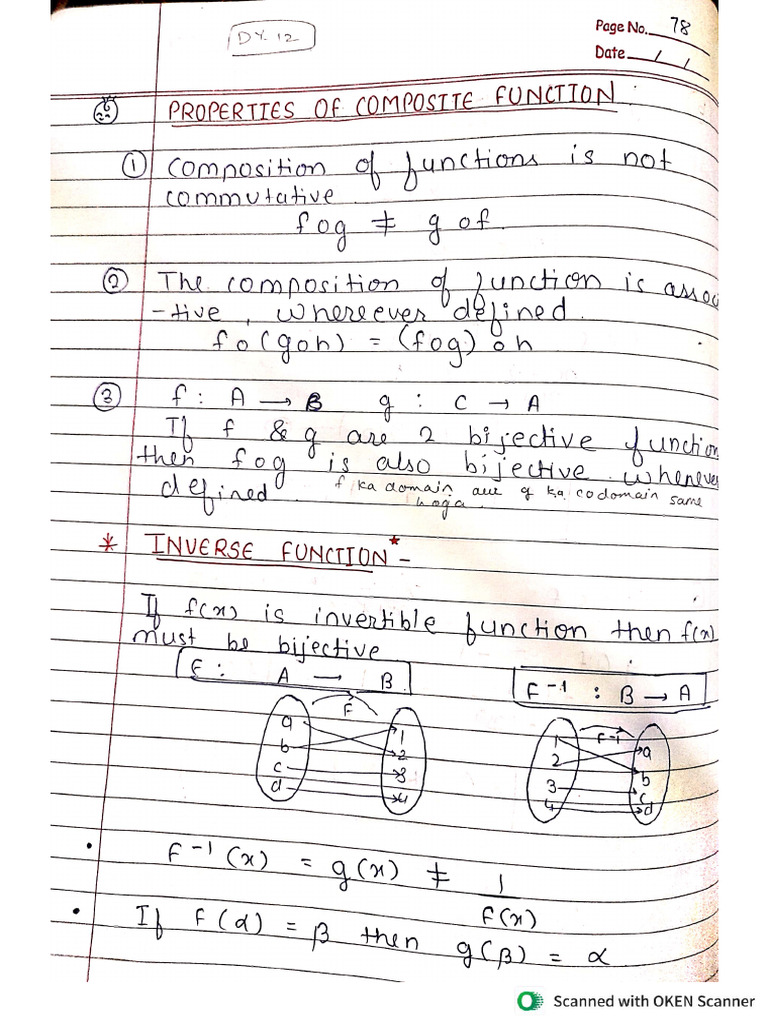 DY. 12
Page No. 78
Date / /
PROPERTIES OF COMPOSITE FUNCTION
① Composition of functions is not
commutative.
fog ≠ gof.
② The composition of function is assoc
-tive, whereever defined.
fo(goh) = (fog)oh
③ f : A → B g : C → A
If f & g are 2 bijective function
then fog is also bijective whenever
defined. f ka domain aur g ka codomain same
hoga.
* INVERSE FUNCTION* -
If f(x) is invertible function then f(x)
must be bijective
F : A → B
F⁻¹ : B → A
F
F⁻¹
a 1 1 a
b 2 2 b
c 3 3 c
d 4 4 d
• F⁻¹(x) = g(x) ≠ 1
F(x)
• If F(α) = β then g(β) = α
Scanned with OKEN Scanner